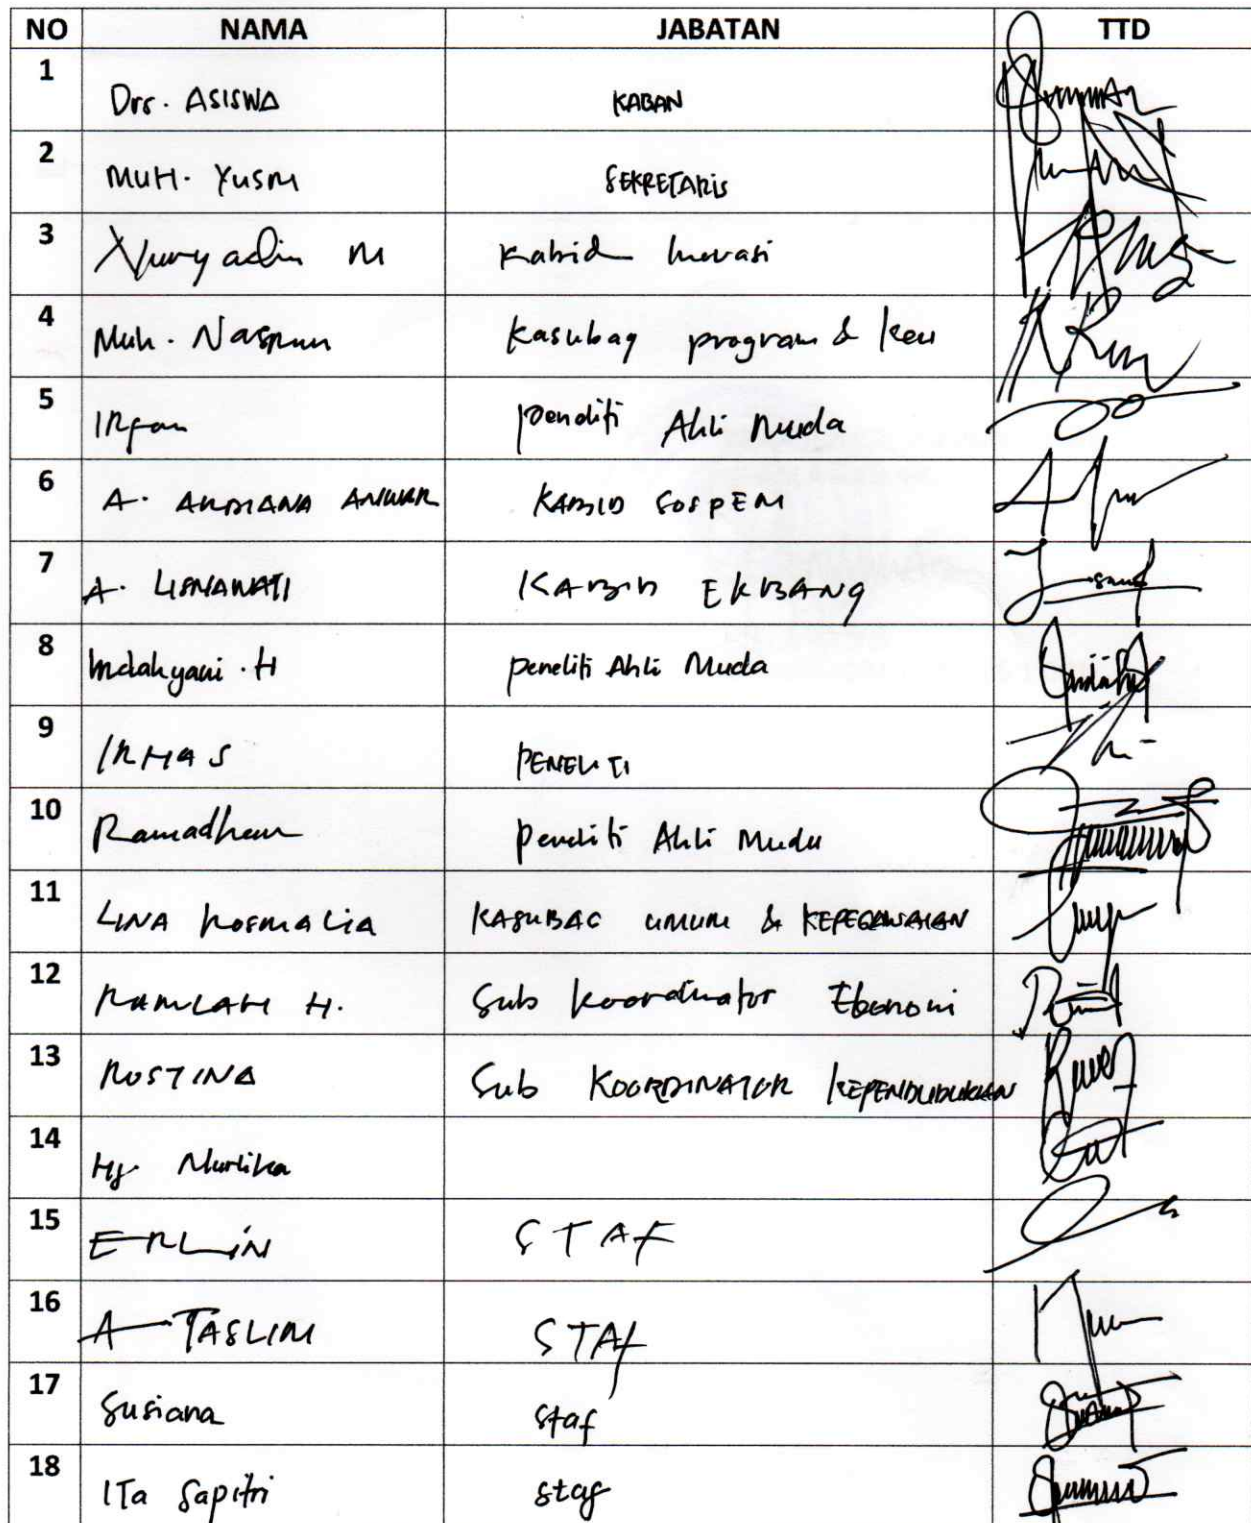 NO NAMA JABATAN TTD
1 Drs. ASISWA KABAN
2 MUH. YUSM SEKRETARIS
3 Nuryadin M Kabid Inovasi
4 Muh. Kasubag program & keu
5 IRfan peneliti Ahli Muda
6 A. ARDIANA ANWAR KABID SOSPEM
7 A. LISNAWATI KABID EKBANG
8 Indahyani . H peneliti Ahli Muda
9 IRHAS PENELITI
10 Ramadhan peneliti Ahli Muda
11 LINA ROSMALIA KASUBAG UMUM & KEPEGAWAIAN
12 RAMLAH H. Sub Koordinator Ekonomi
13 ROSTINA Sub KOORDINATOR KEPENDUDUKAN
14 Hj. Murlika
15 ERLIN STAF
16 A TASLIM STAF
17 Susiana Staf
18 ITa Sapitri staf